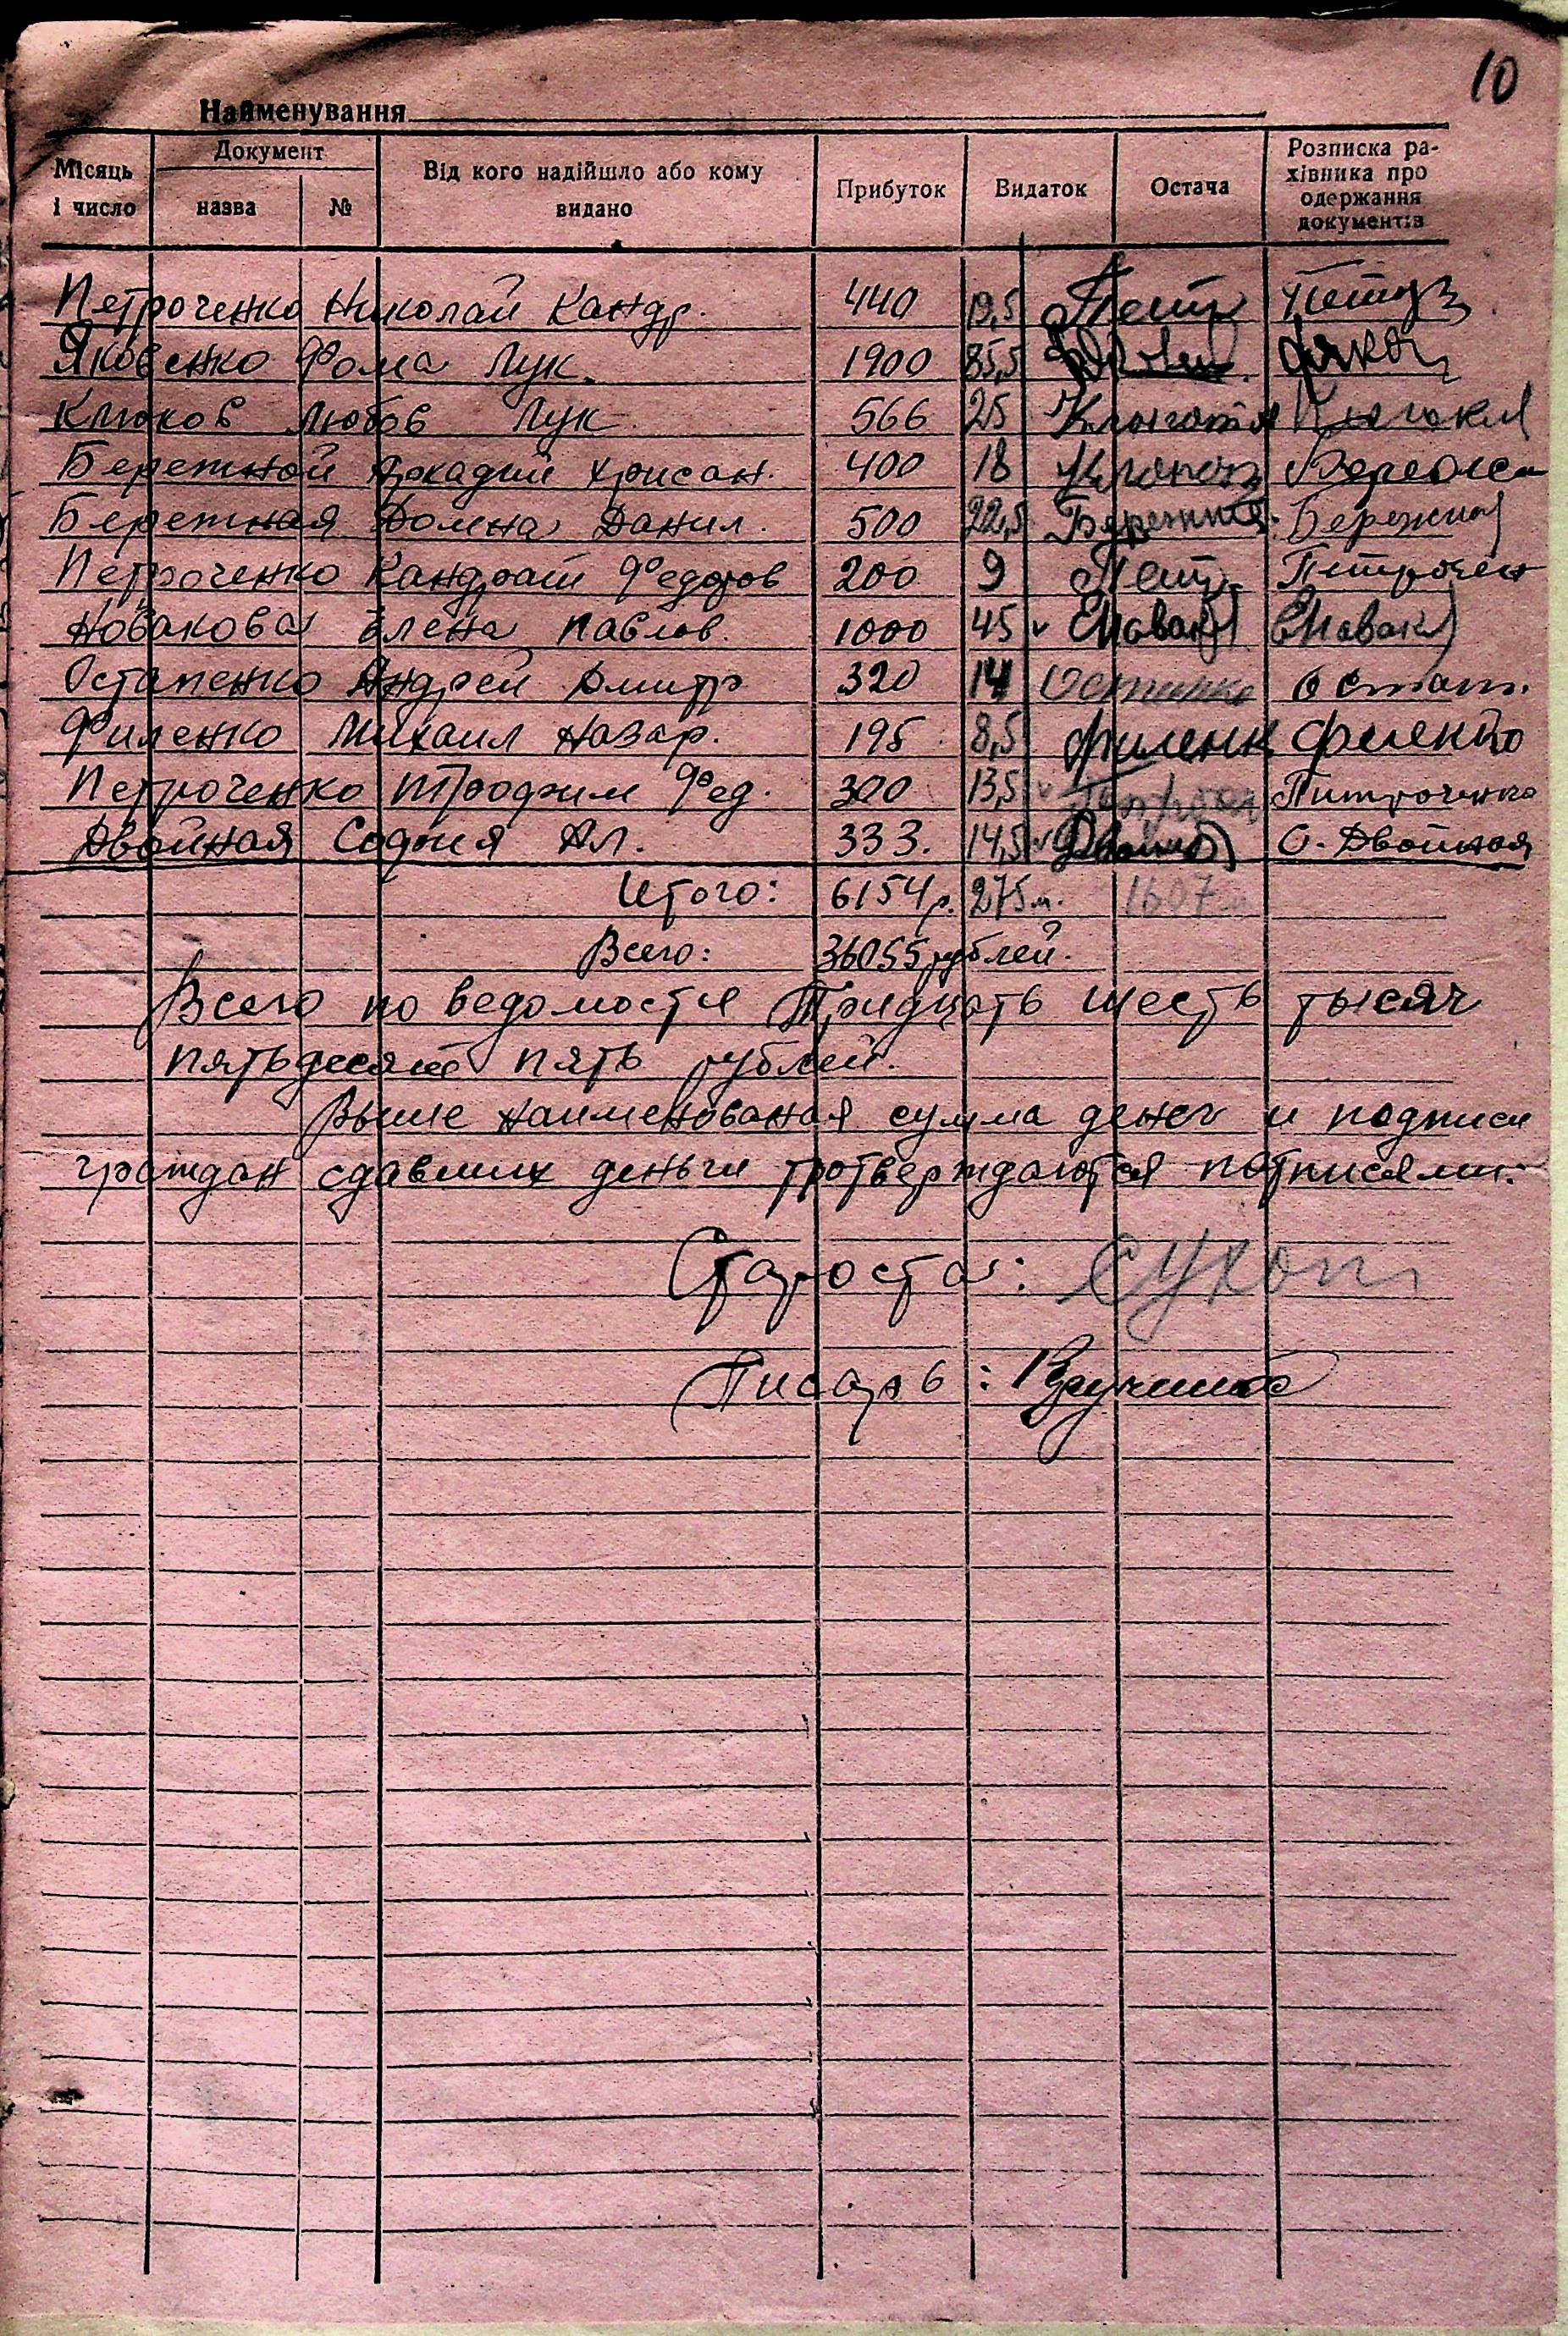 10
Найменування
Місяць і число Документ назва № Від кого надійшло або кому видано Прибуток Видаток Остача Розписка ра-хівника про одержання документів
Петроченко Николай Кандр. 440 19,5 Петр
Яковенко Фома Лук. 1900 85,5
Клюков Любов Лук. 566 25
Бережной Аркадий Хрисан. 400 18
Бережная Домна Данил. 500 22,5 Бережная Бережная
Петроченко Кандрат Федоров 200 9 Петр Питрочен
Новакова Елена Павлов. 1000 45 ЕНовак ЕНовак
Остапенко Андрей Дмитр 320 14 Остапенко Остап.
Филенко Михаил Назар. 195 8,5 Филенк Филенко
Петроченко Трофим Фед. 300 13,5 Питроченко
Двойная София Ал. 333. 14,5 Двойная С. Двойная
Итого: 6154 р. 275 м. 1607
Всего: 36055 рублей.
Всего по ведомости Тридцать шесть тысяч
пятьдесят пять рублей.
Выше наименованая сумма денег и подписи
граждан сдавших деньги потверждаются потписями:
Староста: Сукоп
Писарь: